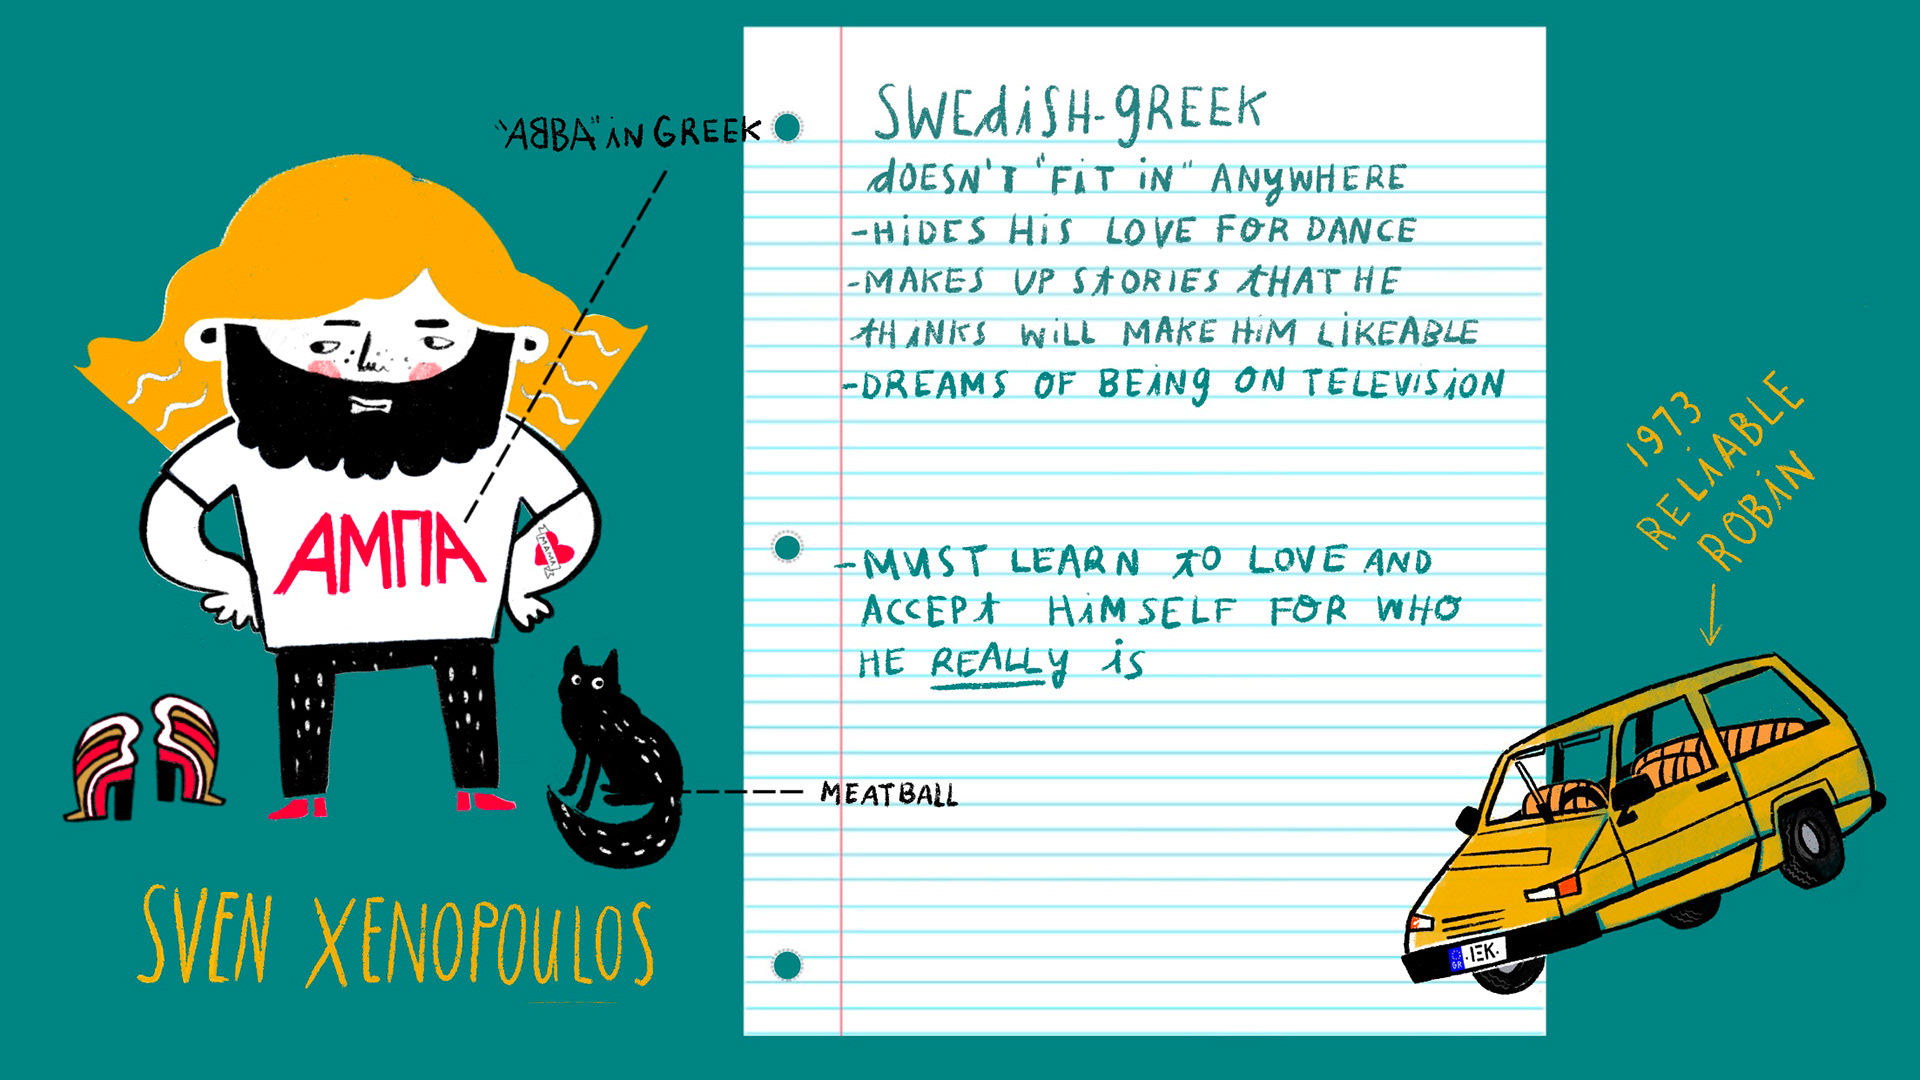 "ABBA" iN GREEK
ΑΜΠΑ
MAMA
MEATBALL
SVEN XENOPOULOS
SWEdiSH-gREEK
dOESN'T "FiT iN" ANyWHERE
-HiDES HiS LOVE FOR DANCE
-MAKES UP StORIES tHAT HE
tHiNKS WiLL MAKE HiM LiKEABLE
-DREAMS OF BEiNg ON TELEVISiON
-MUST LEARN tO LOVE AND
ACCEPt HiMSELF FOR WHO
HE REALLy iS
1973
RELiABLE
ROBiN
GR ·IΞK·